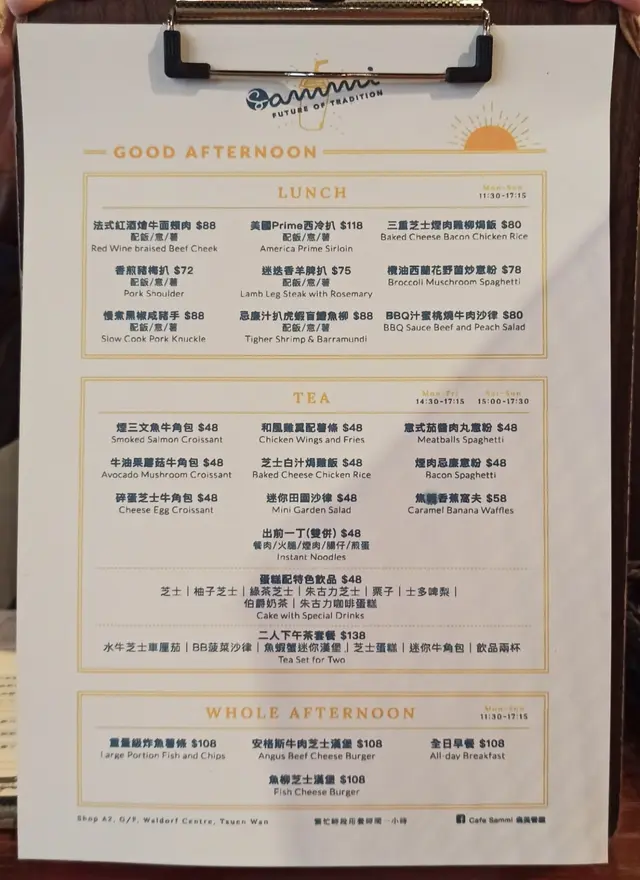 Sammi
FUTURE OF TRADITION
GOOD AFTERNOON
LUNCH
Mon-Sun
11:30-17:15
法式紅酒燴牛面頰肉 $88
配飯/意/薯
Red Wine braised Beef Cheek
美國Prime西冷扒 $118
配飯/意/薯
America Prime Sirloin
三重芝士煙肉雞柳焗飯 $80
Baked Cheese Bacon Chicken Rice
香煎豬梅扒 $72
配飯/意/薯
Pork Shoulder
迷迭香羊脾扒 $75
配飯/意/薯
Lamb Leg Steak with Rosemary
欖油西蘭花野菌炒意粉 $78
Broccoli Muschroom Spaghetti
慢煮黑椒咸豬手 $88
配飯/意/薯
Slow Cook Pork Knuckle
忌廉汁扒虎蝦盲鰽魚柳 $88
配飯/意/薯
Tigher Shrimp & Barramundi
BBQ汁蜜桃燒牛肉沙律 $80
BBQ Sauce Beef and Peach Salad
TEA
Mon-Fri
14:30-17:15
Sat-Sun
15:00-17:30
煙三文魚牛角包 $48
Smoked Salmon Croissant
和風雞翼配薯條 $48
Chicken Wings and Fries
意式茄醬肉丸意粉 $48
Meatballs Spaghetti
牛油果蘑菇牛角包 $48
Avocado Mushroom Croissant
芝士白汁焗雞飯 $48
Baked Cheese Chicken Rice
煙肉忌廉意粉 $48
Bacon Spaghetti
碎蛋芝士牛角包 $48
Cheese Egg Croissant
迷你田園沙律 $48
Mini Garden Salad
焦糖香蕉窩夫 $58
Caramel Banana Waffles
出前一丁(雙併) $48
餐肉/火腿/煙肉/腸仔/煎蛋
Instant Noodles
蛋糕配特色飲品 $48
芝士｜柚子芝士｜綠茶芝士｜朱古力芝士｜栗子｜士多啤梨｜
伯爵奶茶｜朱古力咖啡蛋糕
Cake with Special Drinks
二人下午茶套餐 $138
水牛芝士車厘茄｜BB菠菜沙律｜魚蝦蟹迷你漢堡｜芝士蛋糕｜迷你牛角包｜飲品兩杯
Tea Set for Two
WHOLE AFTERNOON
Mon-Sun
11:30-17:15
重量級炸魚薯條 $108
Large Portion Fish and Chips
安格斯牛肉芝士漢堡 $108
Angus Beef Cheese Burger
全日早餐 $108
All-day Breakfast
魚柳芝士漢堡 $108
Fish Cheese Burger
Shop 62, G/F, Waldorf Centre, Tsuen Wan
繁忙時段用餐時間一小時
Cafe Sammi